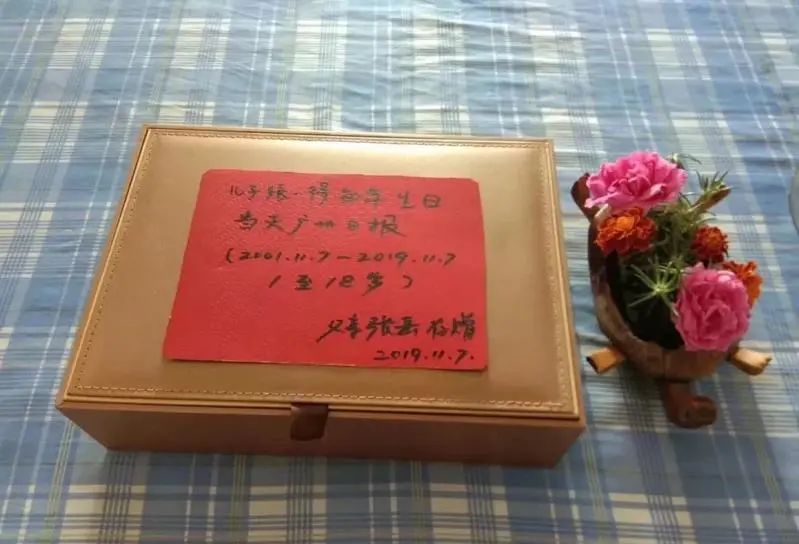 儿子张一得每年生日
当天广州日报
(2001.11.7—2019.11.7
1至18岁)
父亲张岳存赠
2019.11.7.